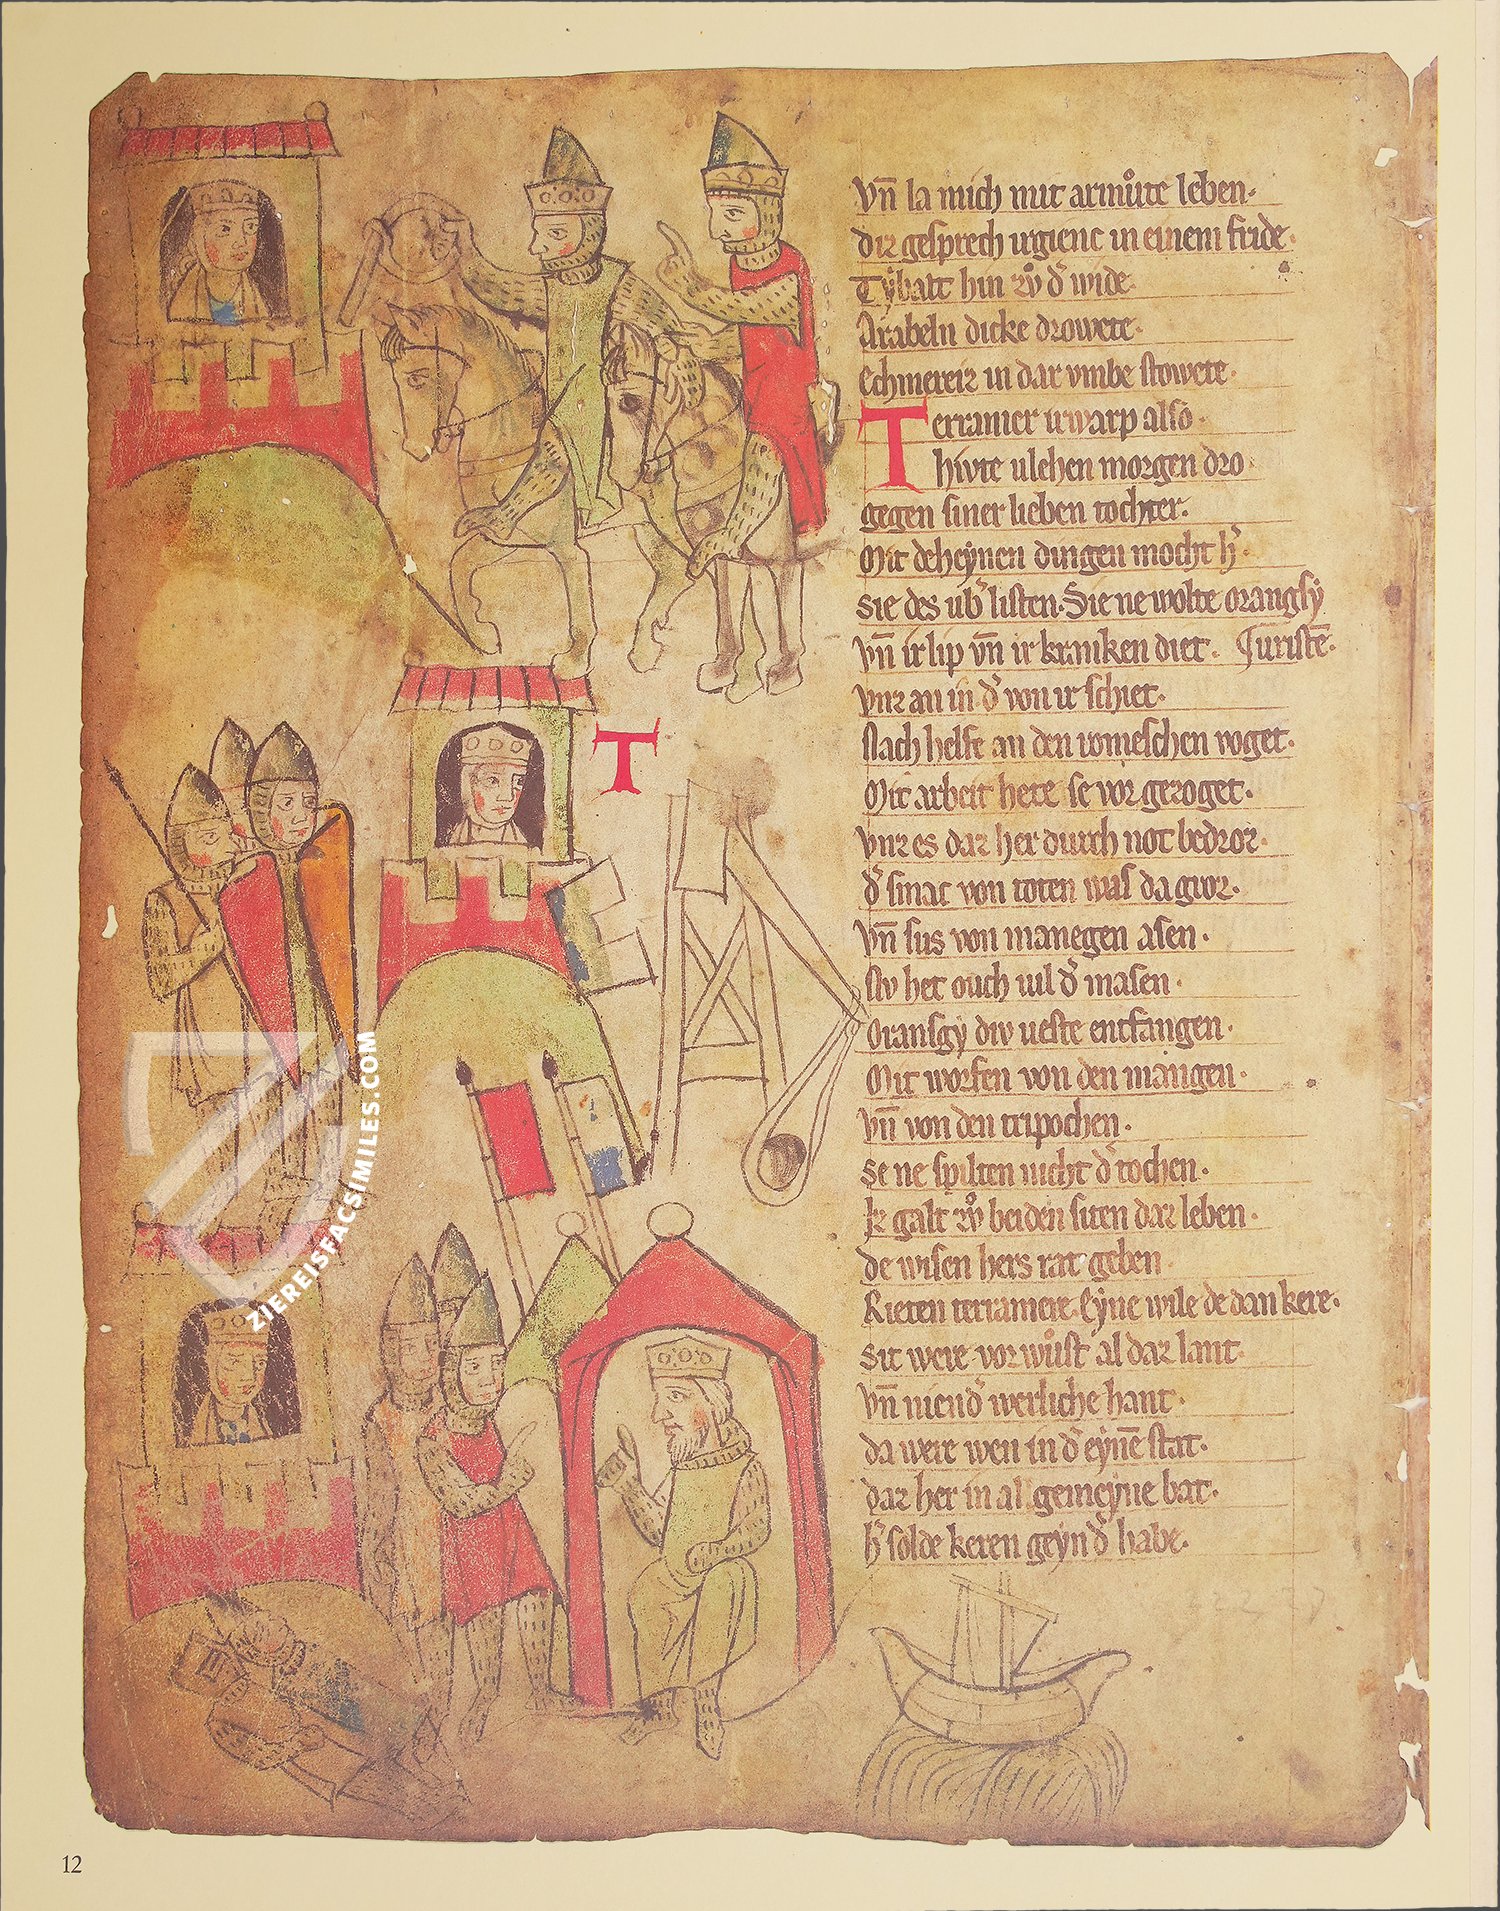 vn̄ la mich mit armůte leben·
diz gesprech irgienc in einem fride·
Tẏbalt hin zů d̛ wide·
Arabeln dicke drowete·
Echmereiz in dar vmbe stowete·
Terramer irwarp also·
hivte ulehen morgen dro·
gegen siner lieben tochter:
Mit deheẏnen dingen mocht h̛·
sie des ub̛ listen·Sie ne wolte orangsẏ
vn̄ ir lip vn̄ ir kranken diet· Turistē·
vnz an in·d̛ von ir schiet·
Nach helfe an den romeschen voget·
Mit arbeit hete se vor gezoget·
vnz es daz her durch not bedroz·
d̛ smac von toten was da groz·
vn̄ sus von manegen asen·
Nv het ouch uil d̛ masen·
Oransgẏ div ueste entfangen·
Mit worfen von den mangen·
vn̄ von den tripochen·
Se ne spilten nicht d̛ tochen·
Iz galt zů beiden siten daz leben·
de wisen hers rat geben
Rieten terramere·Eẏne wile de dan kere·
Sit were vorwůst al daz lant·
vn̄ niend̛ werliche hant·
da were wen in d̛ eẏnē stat·
daz her in al gemeẏne bat·
h̛ solde keren geẏn d̛ habe·
T
ZIEREISFACSIMILES.COM
12